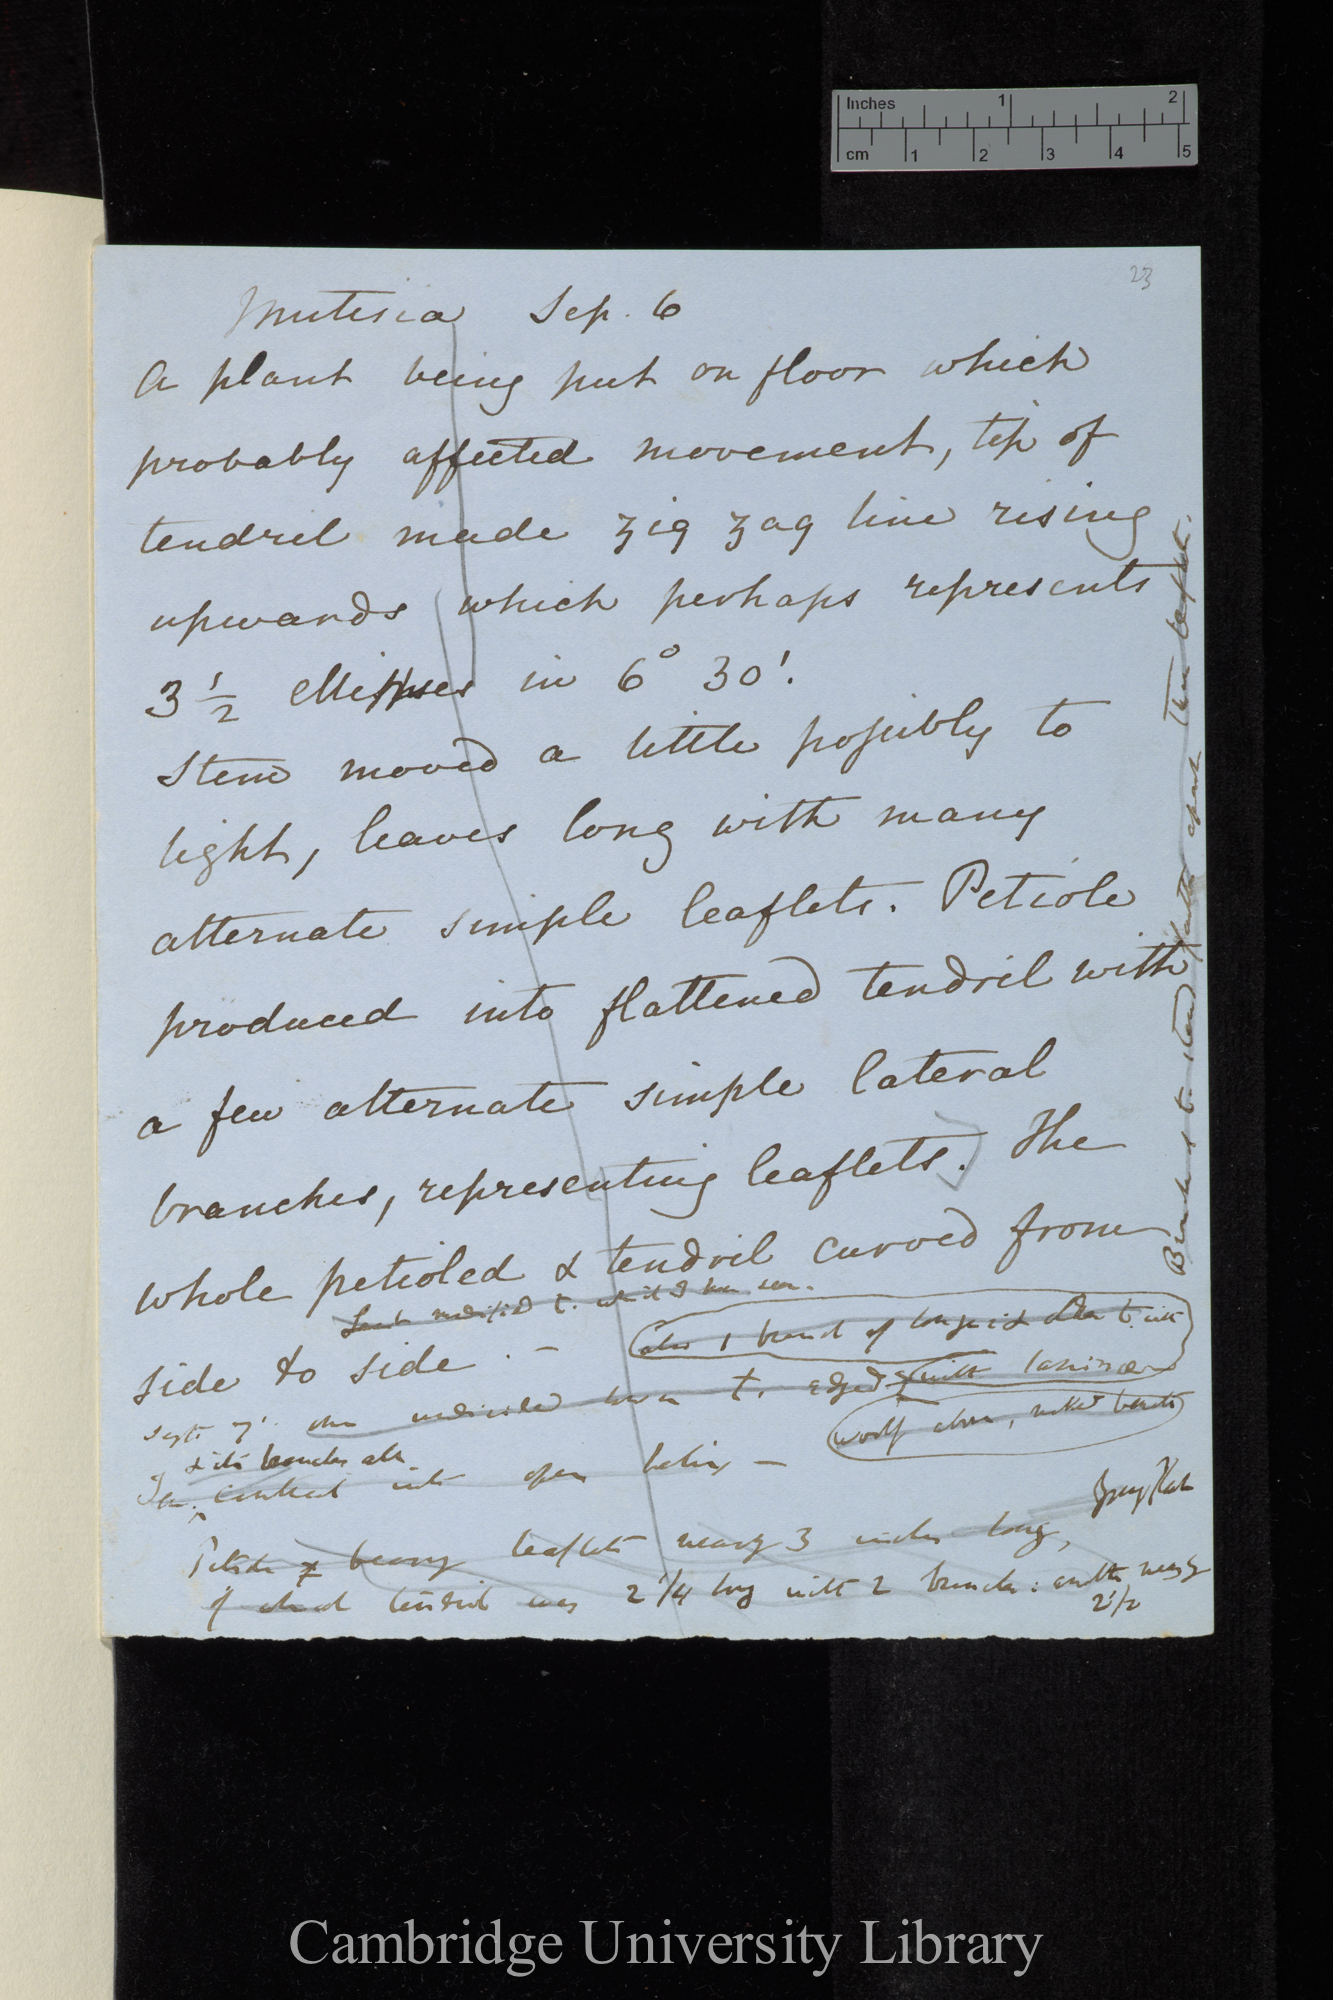 Inches 1 2
cm 1 2 3 4 5
23
Mutisia Sep. 6
A plant being put on floor which
probably affected movement, tip of
tendril made zig zag line rising
upwards which perhaps represents
3 1/2 ellipses in 6° 30'.
Stem moved a little possibly to
light, leaves long with many
alternate simple leaflets. Petiole
produced into flattened tendril with
a few alternate simple lateral
branches, representing leaflets. The
whole petioled & tendril curved from
modified t. which I have seen.
side to side. —
also 1 branch of
Sept 7' one undivided t. edged with laminæ
& its branches all
contract into open helix —
Petiole bearing leaflets nearly 3 inches long,
of which tendril was 2 1/4 long with 2 branches: another nearly
2 1/2
Branches to tend farther apart than leaflet.
Cambridge University Library